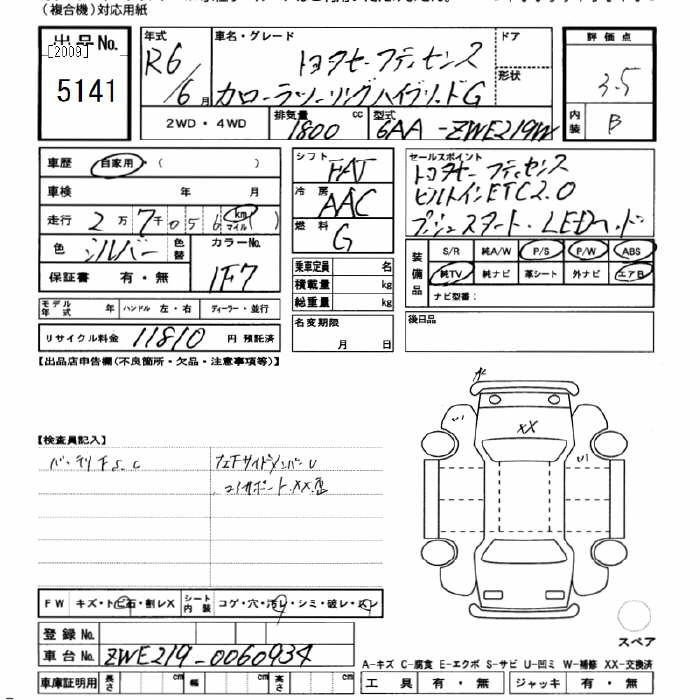 （複合機）対応用紙
出品No.
[2009]
5141
年式 R6/6月
車名・グレード トヨタセーフティセンス
カローラツーリングハイブリッドG
ドア
形状
評価点
3.5
内装 B
2WD・4WD
排気量 1800 cc
型式 6AA-ZWE219W
車歴 自家用・（ ）
車検 年 月
走行 2万7千056 km マイル
色 シルバー 色替 カラーNo. 1F7
保証書 有・無
モデル年式 年 ハンドル 左・右 ディーラー・並行
リサイクル料金 11810 円 預託済
シフト FAT
冷房 AAC
燃料 G
乗車定員 名
積載量 kg
総重量 kg
名変期限
月 日
セールスポイント
トヨタセーフティセンス
ビルトインETC2.0
プッシュスタート・LEDヘッド
装備品
S/R 純A/W P/S P/W ABS
純TV 純ナビ 革シート 外ナビ エアB
ナビ型番：
後日品
【出品店申告欄（不良箇所・欠品・注意事項等）】
【検査員記入】
XX
FW キズ・トビ石・割レX シート内装 コゲ・穴・汚レ・シミ・破レ・スレ
登録No.
車台No. ZWE219-0060934
車庫証明用 長さ cm 幅 cm 高さ cm
スペア
A-キズ C-腐食 E-エクボ S-サビ U-凹ミ W-補修 XX-交換済
工具 有・無 ジャッキ 有・無